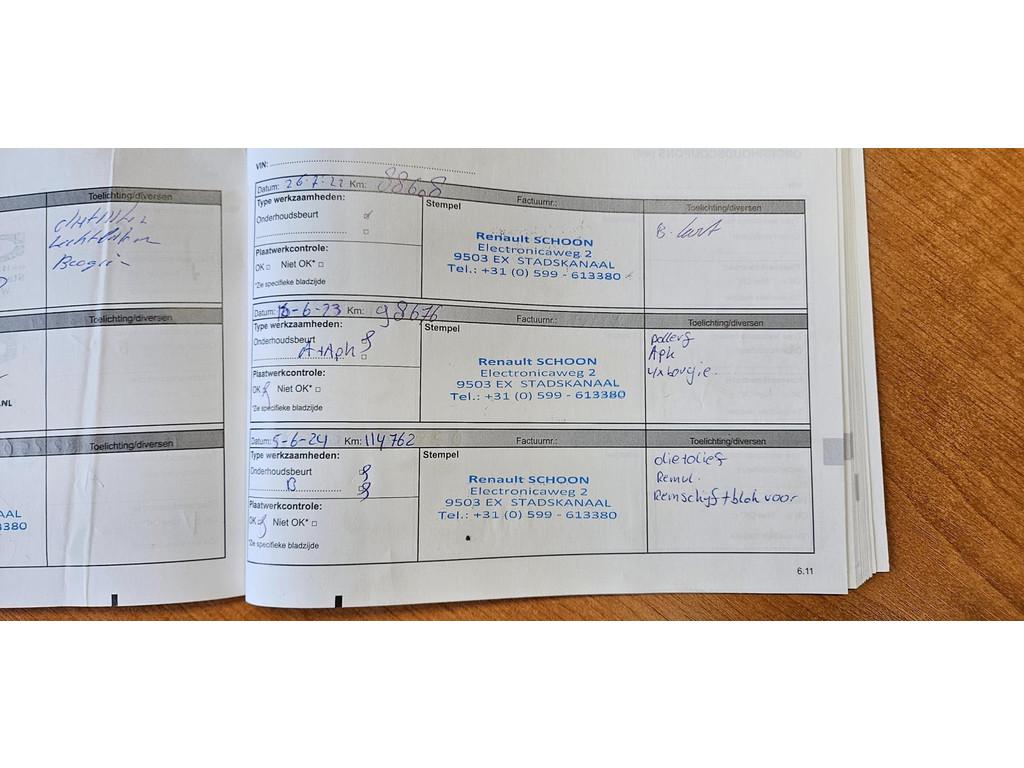 Toelichting/diversen
Toelichting/diversen
.NL
Toelichting/diversen
VIN:
Datum: 26-7-22 Km: 88608
Type werkzaamheden:
Onderhoudsbeurt
Plaatwerkcontrole:
OK □ Niet OK* □
*Zie specifieke bladzijde
Stempel Factuurnr.:
Renault SCHOON
Electronicaweg 2
9503 EX STADSKANAAL
Tel.: +31 (0) 599 - 613380
Toelichting/diversen
Datum: -6-23 Km: 98676
Type werkzaamheden:
Onderhoudsbeurt
A+Aph
Plaatwerkcontrole:
OK Niet OK* □
*Zie specifieke bladzijde
Stempel Factuurnr.:
Renault SCHOON
Electronicaweg 2
9503 EX STADSKANAAL
Tel.: +31 (0) 599 - 613380
Toelichting/diversen
Aph
4x bougie.
Datum: 5-6-24 Km: 114762
Type werkzaamheden:
Onderhoudsbeurt
B
Plaatwerkcontrole:
OK Niet OK* □
*Zie specifieke bladzijde
Stempel Factuurnr.:
Renault SCHOON
Electronicaweg 2
9503 EX STADSKANAAL
Tel.: +31 (0) 599 - 613380
Toelichting/diversen
olie+olief
Remvl.
Remschijf+blok voor
6.11